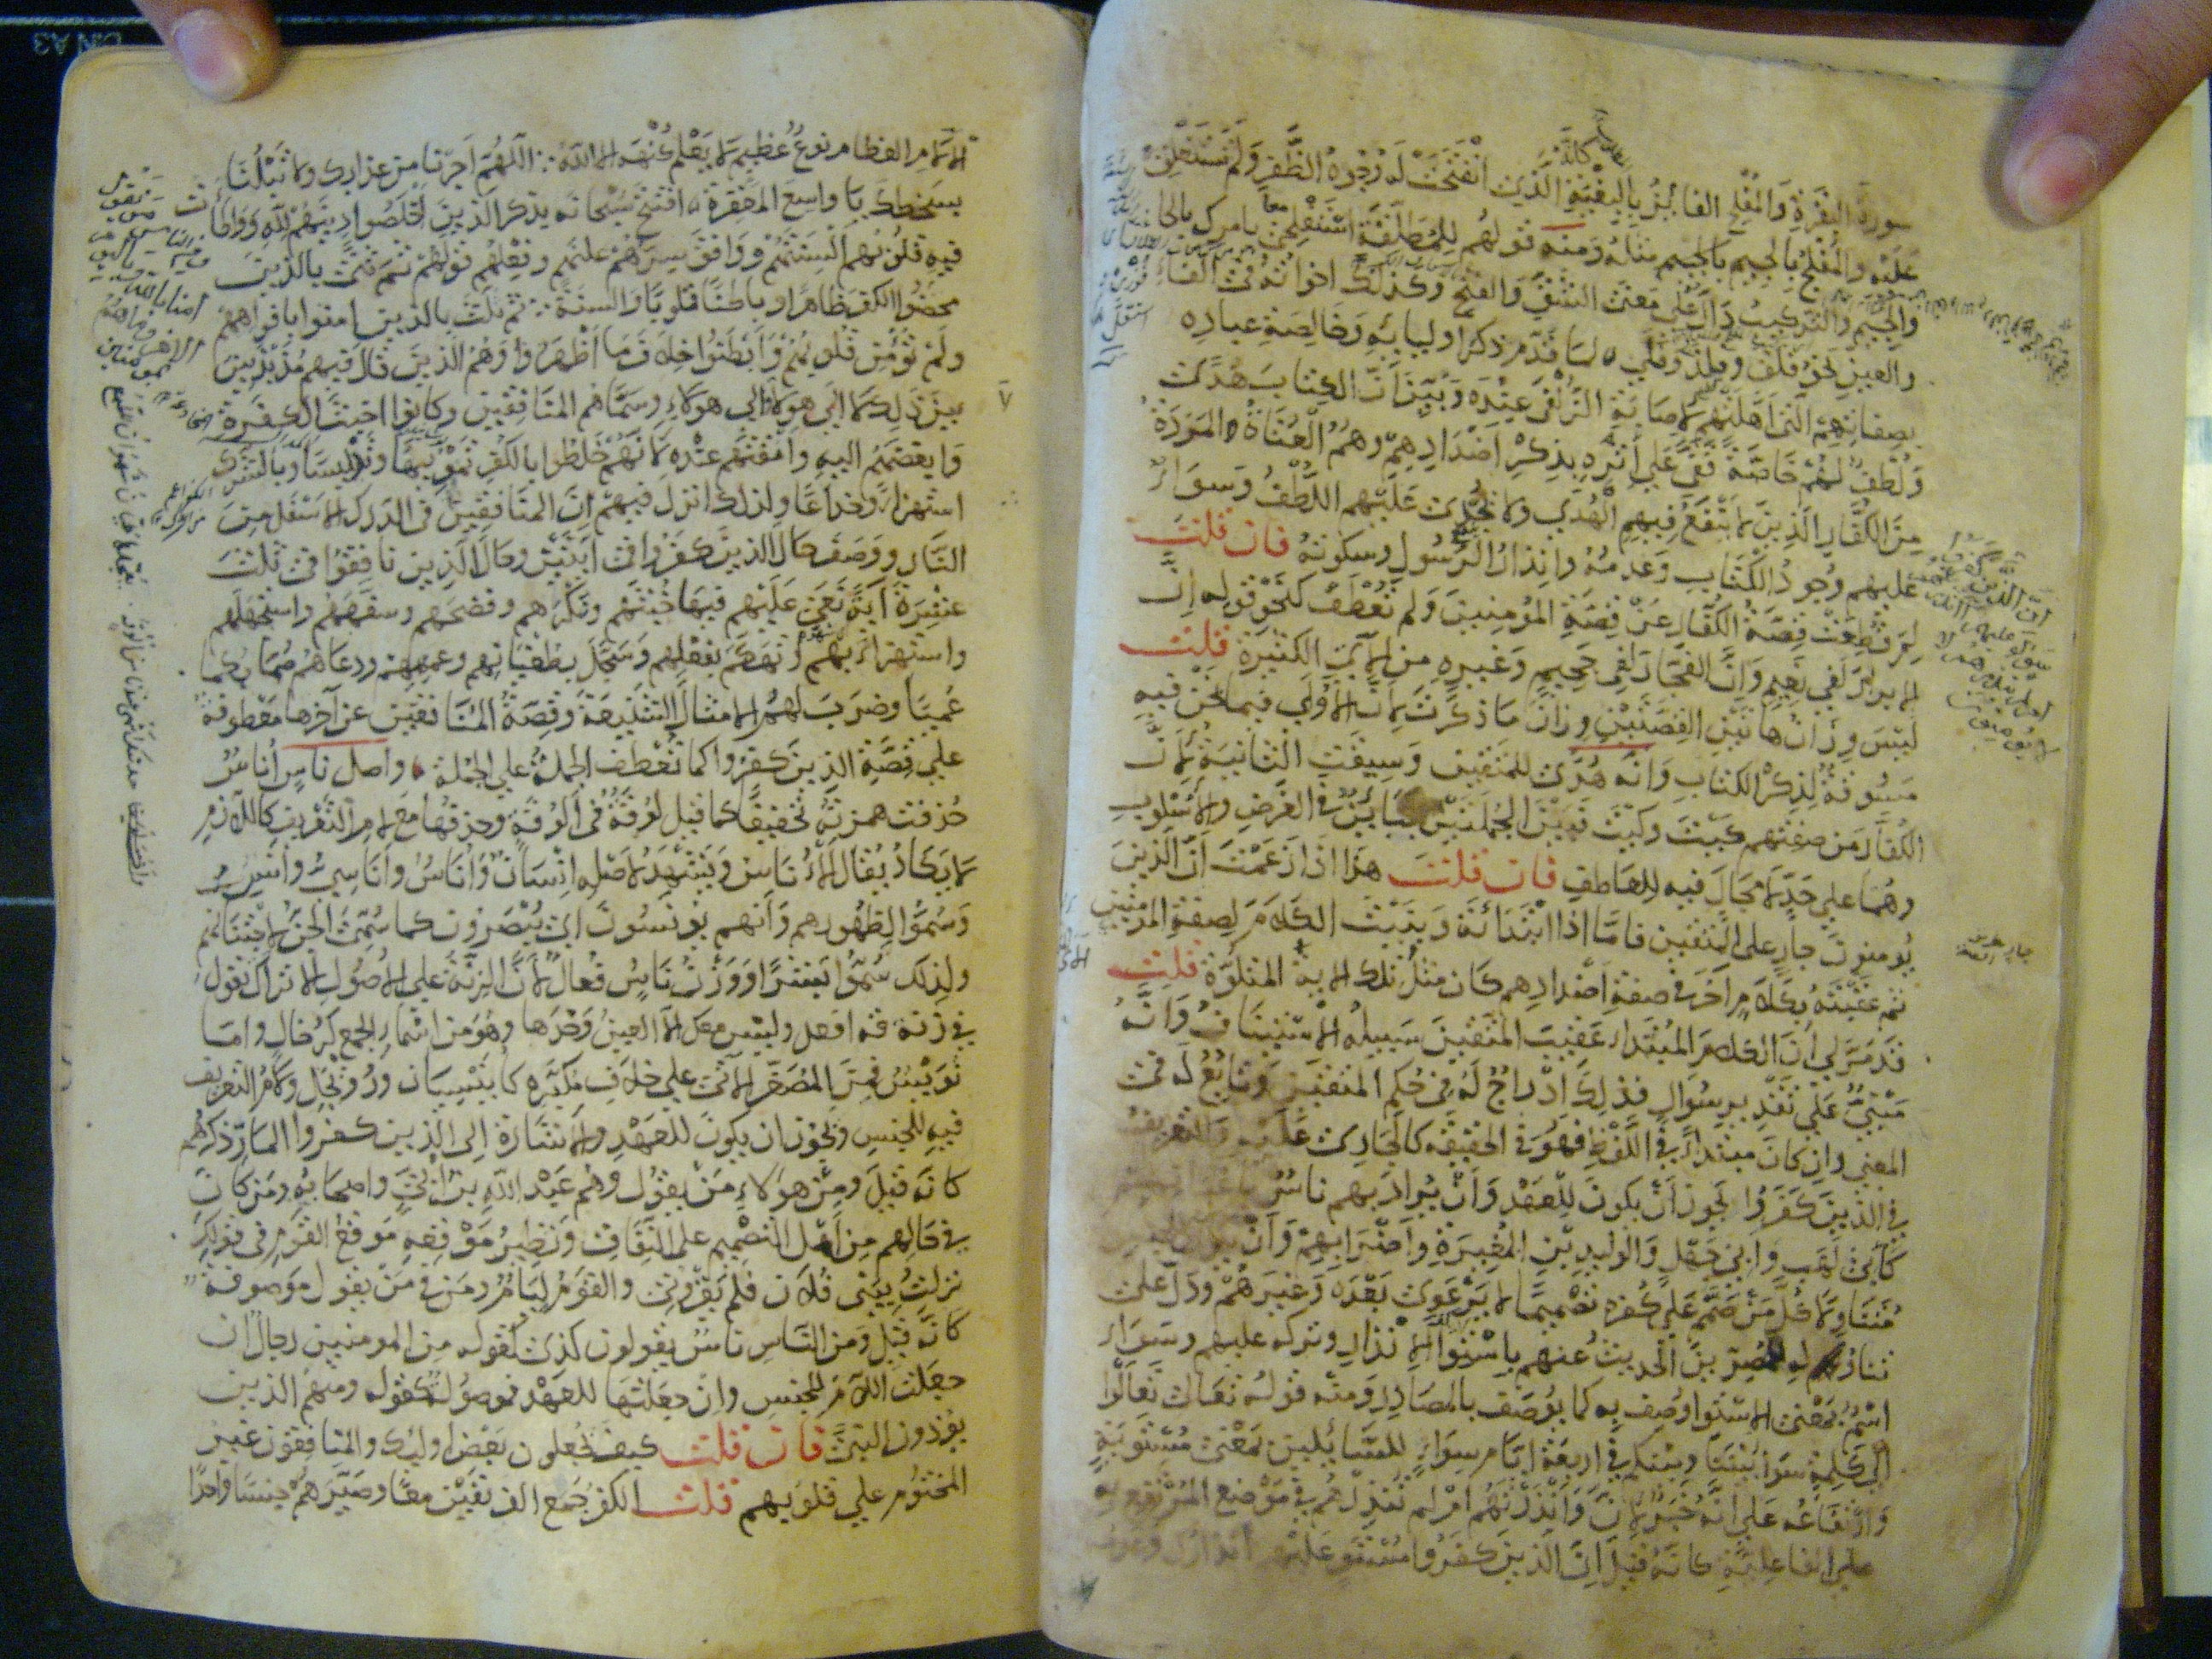 سورة البقرة والمفلح الفائز بالبغية كأنه الذي انفتحت له وجوه الظفر ولم تستغلق
عليه والمفلج بالجيم مثله ومنه قولهم للمطلقة استفلحي بأمرك بالحاء
والجيم والتركيب دال على معنى الشق والفتح وكذلك اخواته في الفاء
والعين نحو فلق وفلذ وفلى لما قدم ذكر اوليائه وخالصة عباده
بصفاتهم التي اهلتهم لاصابة الزلفى عنده وبين ان الكتاب هدى
ولطف لهم خاصة قفى على أثره بذكر اضدادهم وهم العتاة المردة
من الكفار الذين لا ينفع فيهم الهدى ولا يجدي عليهم اللطف وسواء
عليهم وجود الكتاب وعدمه وانذار الرسول وسكوته فان قلت
لم قطعت قصة الكفار عن قصة المؤمنين ولم تعطف كنحو قوله ان
الابرار لفي نعيم وان الفجار لفي جحيم وغيره من الآي الكثيرة قلت
ليس وزان هاتين القصتين وزان ما ذكرت لان الأولى فيما نحن فيه
مسوقة لذكر الكتاب وانه هدى للمتقين وسيقت الثانية لان
الكفار من صفتهم كيت وكيت فبين الجملتين تباين في الغرض والأسلوب
وهما على حد لا مجال فيه للعاطف فان قلت هذا اذا زعمت ان الذين
يومنون جار على المتقين فاما اذا ابتدأته وبنيت الكلام لصفة المؤمنين
ثم عقبته بكلام آخر في صفة أضدادهم كان مثل تلك الآية المتلوة قلت
قد مر لي أن الكلام المبتدا عقيب المتقين سبيله الاستيناف وانه
مبني على تقدير سؤال فذلك ادراج له في حكم المتقين وتابع له في
المعنى وان كان مبتدأ في اللفظ فهو في الحقيقة كالجاري عليه والتعريف
في الذين كفروا يجوز أن يكون للعهد وأن يراد بهم ناس
كأبي لهب وابي جهل والوليد بن المغيرة وأضرابهم وأن
متناولا كل من صمم على كفره تصميما لا يرعوي بعده وغيرهم ودل على
تناوله للمصرين الحديث عنهم باستواء الانذار وتركه عليهم وسواء
اسم بمعنى الاستواء وصف به كما يوصف بالمصادر ومنه قوله تعالى تعالوا
الى كلمة سواء بيننا وبينكم في اربعة ايام سواء للسائلين بمعنى مستوية
وارتفاعه على انه خبر لان وأنذرتهم أم لم تنذرهم في موضع المرتفع به
على الفاعلية كانه قيل ان الذين كفروا مستو عليهم انذارك وعدمه
الالام العظام نوع عظيم لا يعلم كنهه الا الله اللهم اجرنا من عذابك ولا تبلنا
بسخطك يا واسع المغفرة افتتح سبحانه بذكر الذين اخلصوا دينهم لله وواطأت
فيه قلوبهم ألسنتهم ووافق سرهم علنهم وفعلهم قولهم ثم ثنى بالذين
محضوا الكفر ظاهرا وباطنا قلوبا والسنة ثم ثلث بالذين امنوا بافواههم
ولم تؤمن قلوبهم وأبطنوا خلاف ما أظهروا وهم الذين قال فيهم مذبذبين
بين ذلك لا الى هولاء ولا الى هولاء وسماهم المنافقين وكانوا اخبث الكفرة
وابغضهم اليه وامقتهم عنده لانهم خلطوا بالكفر تمويها وتدليسا وبالشرك
استهزاء وخداعا ولذلك انزل فيهم ان المنافقين في الدرك الاسفل من
النار ووصف حال الذين كفروا في ايتين وحال الذين نافقوا في ثلث
عشرة آية نعى عليهم فيها خبثهم ونكرهم وفضحهم وسفههم واستجهلهم
واستهزأ بهم وتهكم بفعلهم وسجل بطغيانهم وعمههم ودعاهم صما بكما
عميا وضرب لهم الامثال الشنيعة وقصة المنافقين عن آخرها معطوفة
على قصة الذين كفروا كما تعطف الجملة على الجملة واصل ناس أناس
حذفت همزته تخفيفا كما قيل لوقة في ألوقة وحذفها مع لام التعريف كاللازم
لا يكاد يقال الأناس ويشهد لاصله انسان وأناس وأناسي وانس
وسموا لظهورهم وأنهم يونسون اي يبصرون كما سمي الجن لاجتنانهم
ولذلك سموا بشرا ووزن ناس فعال لان الزنة على الاصول الا تراك تقول
في زنة قه افعل وليس معك الا العين وحدها وهو من اسماء الجمع كرخال واما
نويس فمن المصغر الآتي على خلاف مكبره كأنيسيان ورويجل ولام التعريف
فيه للجنس ويجوز ان يكون للعهد والاشارة الى الذين كفروا المار ذكرهم
كانه قيل ومن هولاء من يقول وهم عبد الله بن أبي واصحابه ومن كان
في حالهم من أهل التصميم على النفاق ونظير موقعه موقع القوم في قولك
نزلت ببني فلان فلم يقروني والقوم لئام ومن في من يقول موصوفة
كانه قيل ومن الناس ناس يقولون كذى كقوله من المومنين رجال ان
جعلت اللام للجنس وان جعلتها للعهد فموصولة كقوله ومنهم الذين
يوذون النبي فان قلت كيف يجعلون بعض اوليك والمنافقون غير
المختوم على قلوبهم قلت الكفر جمع الفريقين معا وصيرهم جنسا واحدا